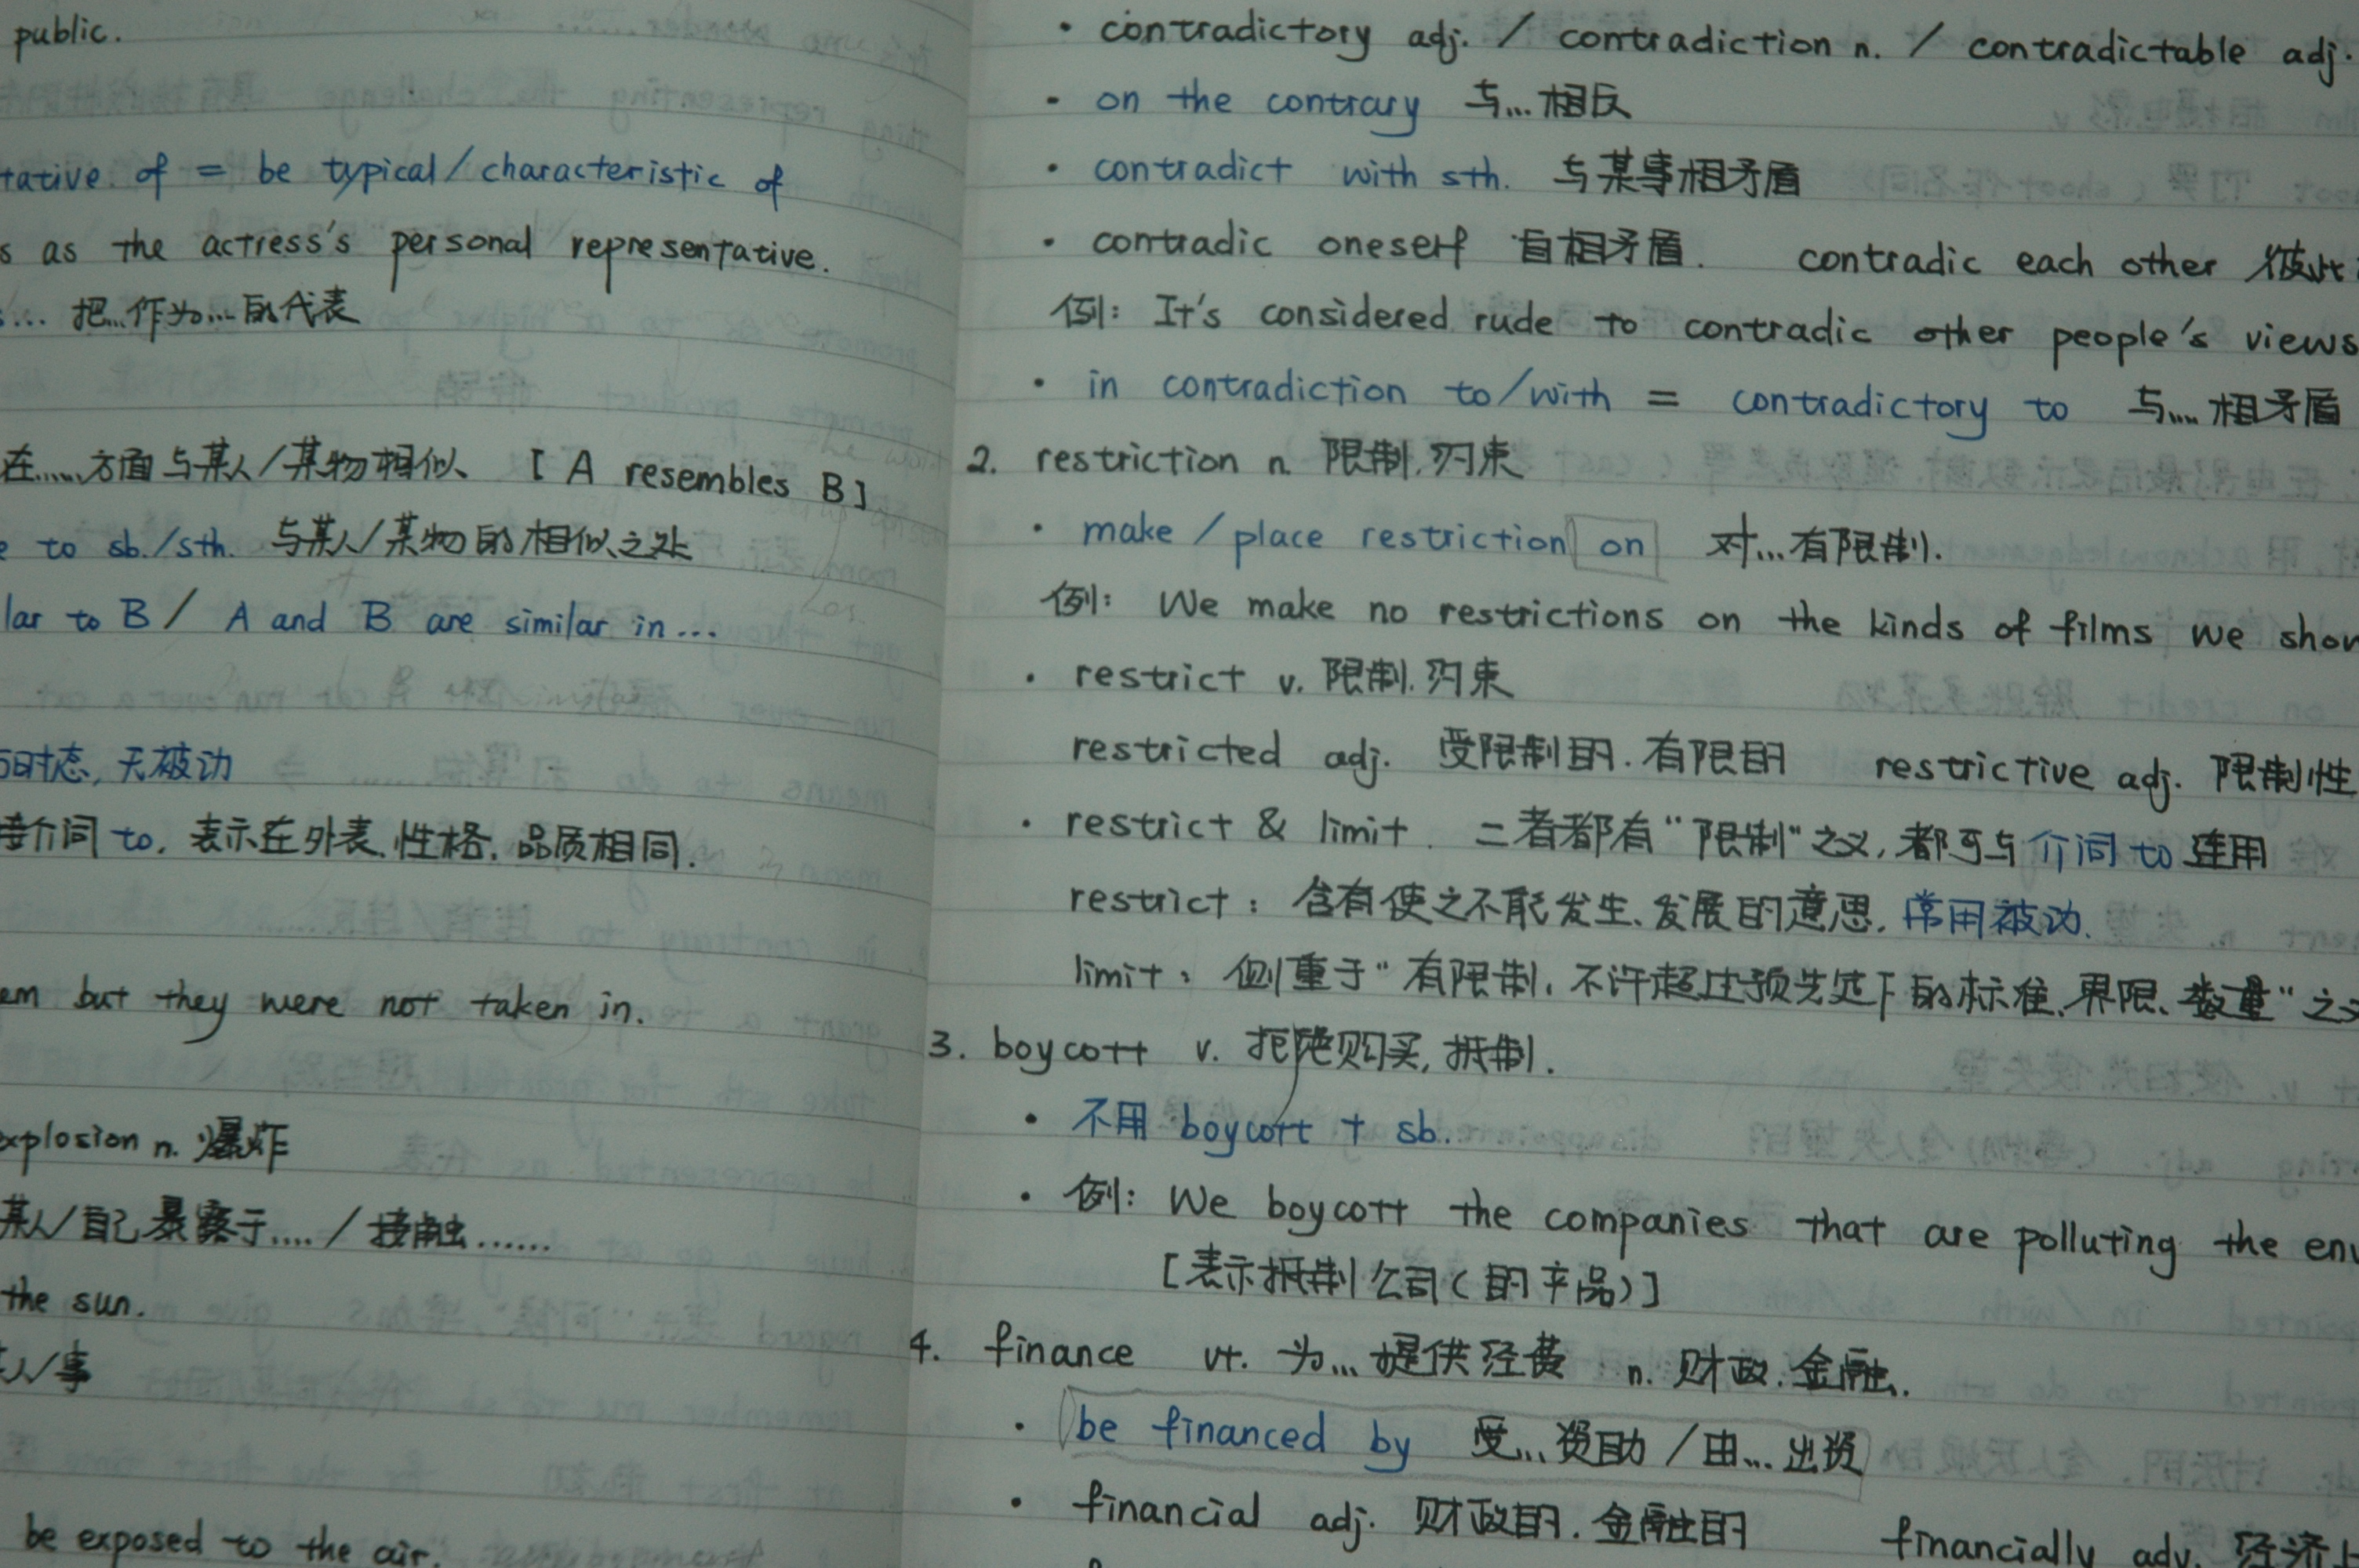 public.
tative of = be typical/characteristic of
s as the actress's personal representative.
... 把...作为...的代表
在......方面与某人/某物相似、 [ A resembles B ]
e to sb./sth. 与某人/某物的相似之处
lar to B / A and B are similar in...
时态, 无被动
介词 to, 表示在外表、性格、品质相同.
em but they were not taken in.
xplosion n. 爆炸
某人/自己暴露于.... / 接触......
the sun.
人/事
be exposed to the air.
• contradictory adj. / contradiction n. / contradictable adj.
• on the contrary 与...相反
• contradict with sth. 与某事相矛盾
• contradic oneself 自相矛盾. contradic each other 彼此
例: It's considered rude to contradic other people's views
• in contradiction to/with = contradictory to 与....相矛盾
2. restriction n. 限制.约束
• make / place restriction on 对...有限制.
例: We make no restrictions on the kinds of films we show
• restrict v. 限制.约束
restricted adj. 受限制的.有限的 restrictive adj. 限制性
• restrict & limit. 二者都有"限制"之义,都可与介词 to 连用
restrict: 含有使之不能发生、发展的意思, 常用被动.
limit: 侧重于"有限制, 不许超过预先定下的标准、界限、数量"之义
3. boycott v. 拒绝购买, 抵制.
• 不用 boycott + sb.
• 例: We boycott the companies that are polluting the env
[表示抵制公司(的产品)]
4. finance vt. 为...提供经费 n. 财政.金融.
• be financed by 受...资助 / 由...出资
• financial adj. 财政的.金融的 financially adv. 经济上